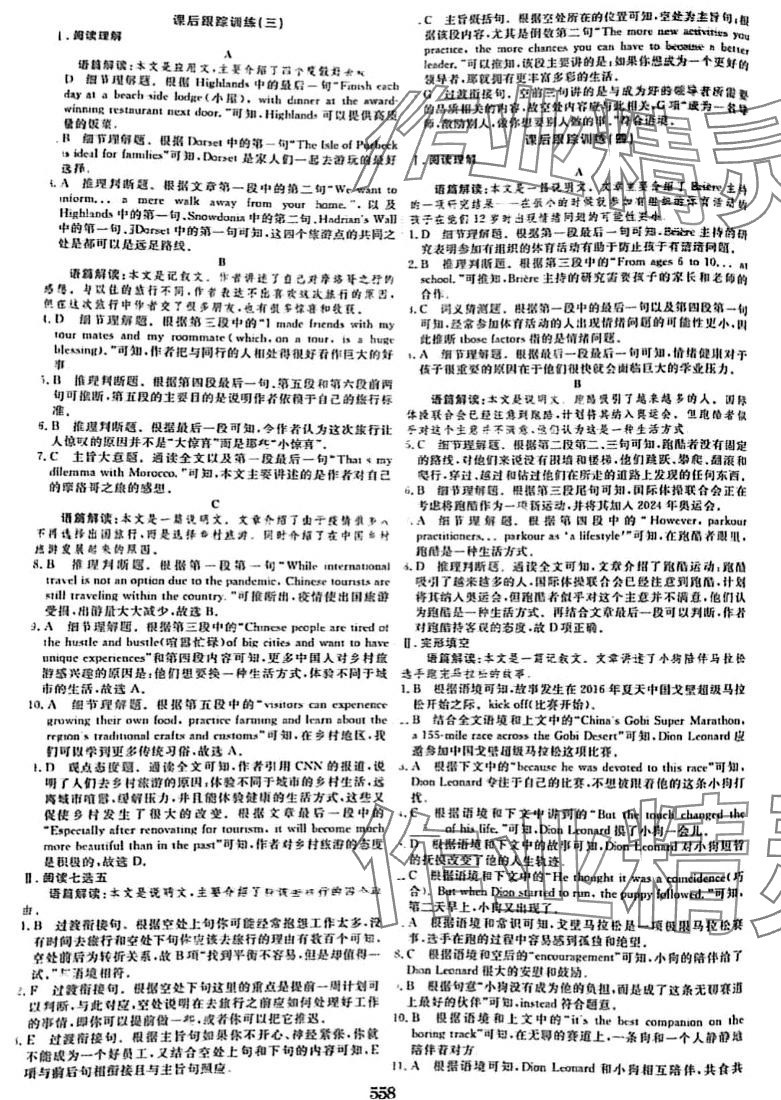 课后跟踪训练(三)
Ⅰ.阅读理解
A
语篇解读:本文是应用文,主要介绍了四个度假好去处
D 细节理解题。根据Highlands中的最后一句“Finish each
day at a beach side lodge(小屋), with dinner at the award-
winning restaurant next door.”可知, Highlands可以提供高质
量的饭菜。
B 细节理解题。根据Dorset中的第一句“The Isle of Purbeck
is ideal for families”可知, Dorset是家人们一起去游玩的最好
选择。
A 推理判断题。根据文章第一段中的第二句“We want to
inform... a mere walk away from your home.”, 以及
Highlands中的第一句、Snowdonia中的第二句、Hadrian's Wall
中的第一句、Dorset中的第一句可知,这四个旅游点的共同之
处是都可以是远足路线。
B
语篇解读:本文是记叙文。作者讲述了自己对摩洛哥之行的
感想。与以往的旅行不同,作者表达不出喜欢这次旅行的原因,
但在这次旅行中作者交了很多朋友,也有很多的惊喜和收获。
D 细节理解题。根据第三段中的“I made friends with my
tour mates and my roommate (which, on a tour, is a huge
blessing).”可知,作者把与同行的人相处得很好看作巨大的好
事
5. B 推理判断题。根据第四段最后一句、第五段和第六段前两
句可推断,第五段的主要目的是说明作者依赖于自己的旅行
社。
6. B 推理判断题。根据最后一段可知,令作者认为这次旅行让
人惊叹的原因并不是“大惊喜”而是那些“小惊喜”。
7. C 主旨大意题。通读全文以及第一段最后一句“That's my
dilemma with Morocco.”可知,本文主要讲述的是作者对自己
的摩洛哥之旅的感想。
C
语篇解读:本文是一篇说明文。文章介绍了由于疫情很多人
不再选择出国旅行,而是选择乡村旅游。同时介绍了在中国乡村
旅游发展起来的原因。
8. B 推理判断题。根据第一段第一句“While international
travel is not an option due to the pandemic, Chinese tourists are
still traveling within the country.”可推断出,疫情使出国旅游
受损,出游量大大减少,故选B。
9. A 细节理解题。根据第三段中的“Chinese people are tired of
the hustle and bustle(喧嚣忙碌)of big cities and want to have
unique experiences”和第四段内容可知,更多中国人对乡村旅
游感兴趣的原因是:他们想要换一种生活方式,体验不同于城
市的生活,故选A。
10. A 细节理解题。根据第五段中的“visitors can experience
growing their own food, practice farming and learn about the
region's traditional crafts and customs”可知,在乡村地区,我
们可以学到更多传统习俗,故选A。
D 观点态度题。通读全文可知,作者引用CNN的报道,说
明了人们去乡村旅游的原因:体验不同于城市的乡村生活,远
离城市喧嚣,缓解压力,并且能体验健康的生活方式,这些又
促使乡村发生了很大的改变。根据最后一段中的
“Especially after renovating for tourism, it will become much
more beautiful than in the past”可知,作者对乡村旅游的态度
是积极的,故选D。
Ⅱ.阅读七选五
语篇解读:本文是说明文,主要介绍了
由。
1. B 过渡衔接句。根据空处上句你可能经常抱怨工作太多,没
有时间去旅行和空处下句你应该去旅行的理由有数千个可知,
空处前后为转折关系,故B项“找到平衡不容易,但是却值得一
试。”与语境相符。
2. F 过渡衔接句。根据空处下句这里的重点是提前一周计划可
以判断,与此对应,空处说明在去旅行之前应如何处理好工作
的事情,即你可以提前做一些,或者你可以把它推迟。
3. E 过渡衔接句。根据主旨句如果你不开心、神经紧张,你就
不能成为一个好员工,又结合空处上句和下句的内容可知,E
项与前后句相衔接且与主旨句照应。
C 主旨概括句。根据空处所在的位置可知,空处为主旨句;根
据该段内容,尤其是倒数第二句“The more new activities you
practice, the more chances you can have to become a better
leader.”可以推知,该段主要讲的是:如果你想成为一个更好的
领导者,那就拥有更丰富多彩的生活。
G 过渡衔接句。空前三句讲的是与成为好的领导者所需要
的品质相关的内容,故空处内容应与此相关,G项“成为一名导
师,激励别人,做你想要别人做的事。”符合语境。
课后跟踪训练(四)
Ⅰ.阅读理解
A
语篇解读:本文是一篇说明文。文章主要介绍了Brière主持
的一项研究结果——在很小的时候就参加有组织的体育活动的
孩子在他们12岁时出现情绪问题的可能性更小。
1. D 细节理解题。根据第一段的最后一句可知, Brière主持的
研究表明参加有组织的体育活动有助于防止孩子有情绪问题。
2. B 推理判断题。根据第三段中的“From ages 6 to 10... at
school.”可推知, Brière主持的研究需要孩子的家长和老师的
合作。
C 词义猜测题。根据第一段中的最后一句以及第四段第一句
可知,经常参加体育活动的人出现情绪问题的可能性更小,因
此推断those factors指的是情绪问题。
A 细节理解题。根据最后一段最后一句可知,情绪健康对于
孩子很重要的原因在于他们很快就会面临巨大的学业压力。
B
语篇解读:本文是说明文。跑酷吸引了越来越多的人,国际
体操联合会已经注意到跑酷,计划将其纳入奥运会。但跑酷者似
乎对这个主意并不满意,因为他们认为跑酷是一种生活方式
5. C 细节理解题。根据第二段第二、三句可知,跑酷者没有固定
的路线,对他们来说没有围墙和楼梯,他们跳跃、攀爬、翻滚和
爬行,穿过、越过和钻过他们在所走的道路上发现的任何东西。
6. B 细节理解题。根据第三段尾句可知,国际体操联合会正在
考虑将跑酷作为一项新运动,并将其加入2024年奥运会。
A 细节理解题。根据第四段中的“However, parkour
practitioners... parkour as 'a lifestyle'”可知,在跑酷者眼里,
跑酷是一种生活方式。
D 推理判断题。通读全文可知,文章介绍了跑酷运动;跑酷
吸引了越来越多的人,国际体操联合会已经注意到跑酷,计划
将其纳入奥运会,但跑酷者似乎对这个主意并不满意,他们认
为跑酷是一种生活方式。再结合文章最后一段可以判断,作者
对跑酷持客观的态度,故D项正确。
Ⅱ.完形填空
语篇解读:本文是一篇记叙文。文章讲述了小狗陪伴马拉松
选手跑完马拉松的故事。
1. B 根据语境可知,故事发生在2016年夏天中国戈壁超级马拉
松开始之际。kick off(比赛开始)。
2. B 结合全文语境和上文中的“China's Gobi Super Marathon,
a 155-mile race across the Gobi Desert”可知, Dion Leonard应
邀参加中国戈壁超级马拉松这项比赛。
A 根据下文中的“because he was devoted to this race”可知,
Dion Leonard专注于自己的比赛,不想被跟着他的这条小狗打
扰。
C 根据语境和下文中的讲到的“But the touch changed the
of his life.”可知, Dion Leonard摸了小狗一会儿。
D 根据语境和下文中的故事可知, Dion Leonard对小狗短暂
的抚摸改变了他的人生轨迹。
C 根据语境和下文中的“He thought it was a coincidence(巧
合). But when Dion started to run, the puppy followed.”可知,
第二天早上,小狗又出现了。
A 根据语境和常识可知,戈壁马拉松是一项极限马拉松赛
事,选手跑的过程中容易感到孤独和绝望。
C 根据语境和空后的“encouragement”可知,小狗的陪伴给了
Dion Leonard很大的安慰和鼓励。
B 根据句意“小狗没有成为他的负担,而是成了这条无聊赛道
上最好的伙伴”可知, instead符合题意。
10. B 根据语境和上文中的“it's the best companion on the
boring track”可知,在无聊的赛道上,有小狗和一个人静静地
陪伴着对方
11. C 根据语境可知, Dion Leonard和小狗相互陪伴,共食共
558
作业精灵
作业精灵